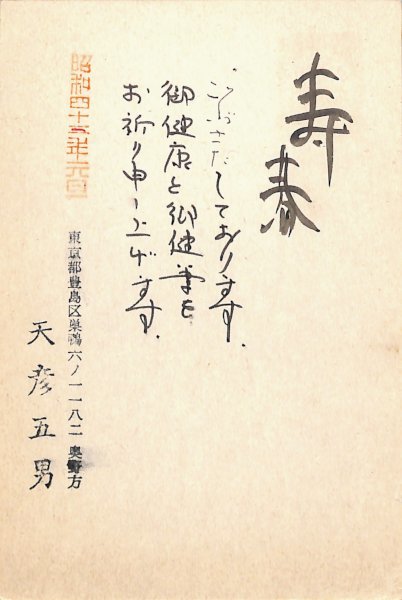 寿春
ごぶさたしております.
御健康と御健筆を
お祈り申し上げます.
昭和四十五年元旦
東京都豊島区巣鴨六ノ一一八二 奥野方
天彦五男